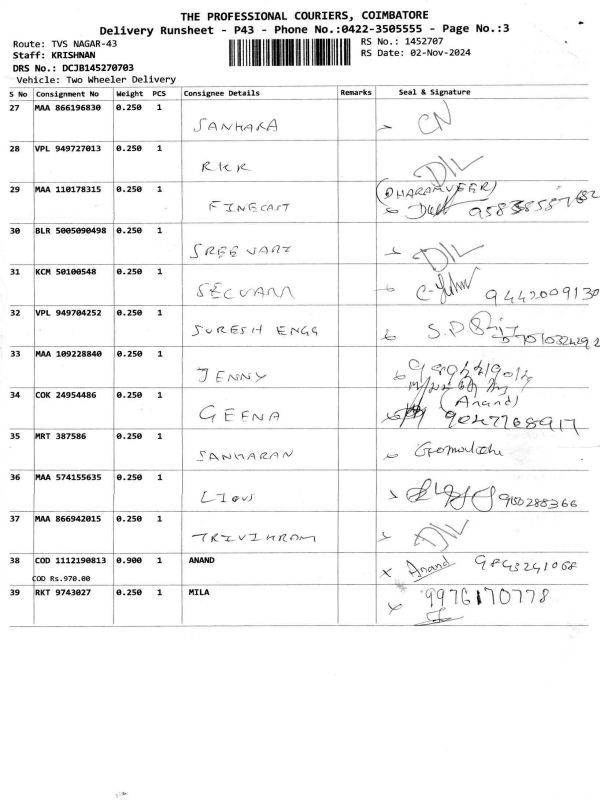 THE PROFESSIONAL COURIERS, COIMBATORE
Delivery Runsheet - P43 - Phone No.:0422-3505555 - Page No.:3
Route: TVS NAGAR-43
RS No.: 1452707
Staff: KRISHNAN
RS Date: 02-Nov-2024
DRS No.: DCJB145270703
Vehicle: Two Wheeler Delivery
S No Consignment No Weight PCS Consignee Details Remarks Seal & Signature
27 MAA 866196830 0.250 1
SANKARA CN
28 VPL 949727013 0.250 1
RKR D/L
29 MAA 110178315 0.250 1 (DHARAMVEER)
FINECAST
30 BLR 5005090498 0.250 1
SREE VARI D/L
31 KCM 50100548 0.250 1
SELVAM 9442009130
32 VPL 949704252 0.250 1
SURESH ENGG S.P
33 MAA 109228840 0.250 1
JENNY
34 COK 24954486 0.250 1 (Anand)
GEENA 9047768917
35 MRT 387586 0.250 1
SANKARAN
36 MAA 574155635 0.250 1
LIGUS
37 MAA 866942015 0.250 1
TRIVIKRAM D/L
38 COD 1112190813 0.900 1 ANAND
x Anand 9843241068
COD Rs.970.00
39 RKT 9743027 0.250 1 MILA
x 9976170778